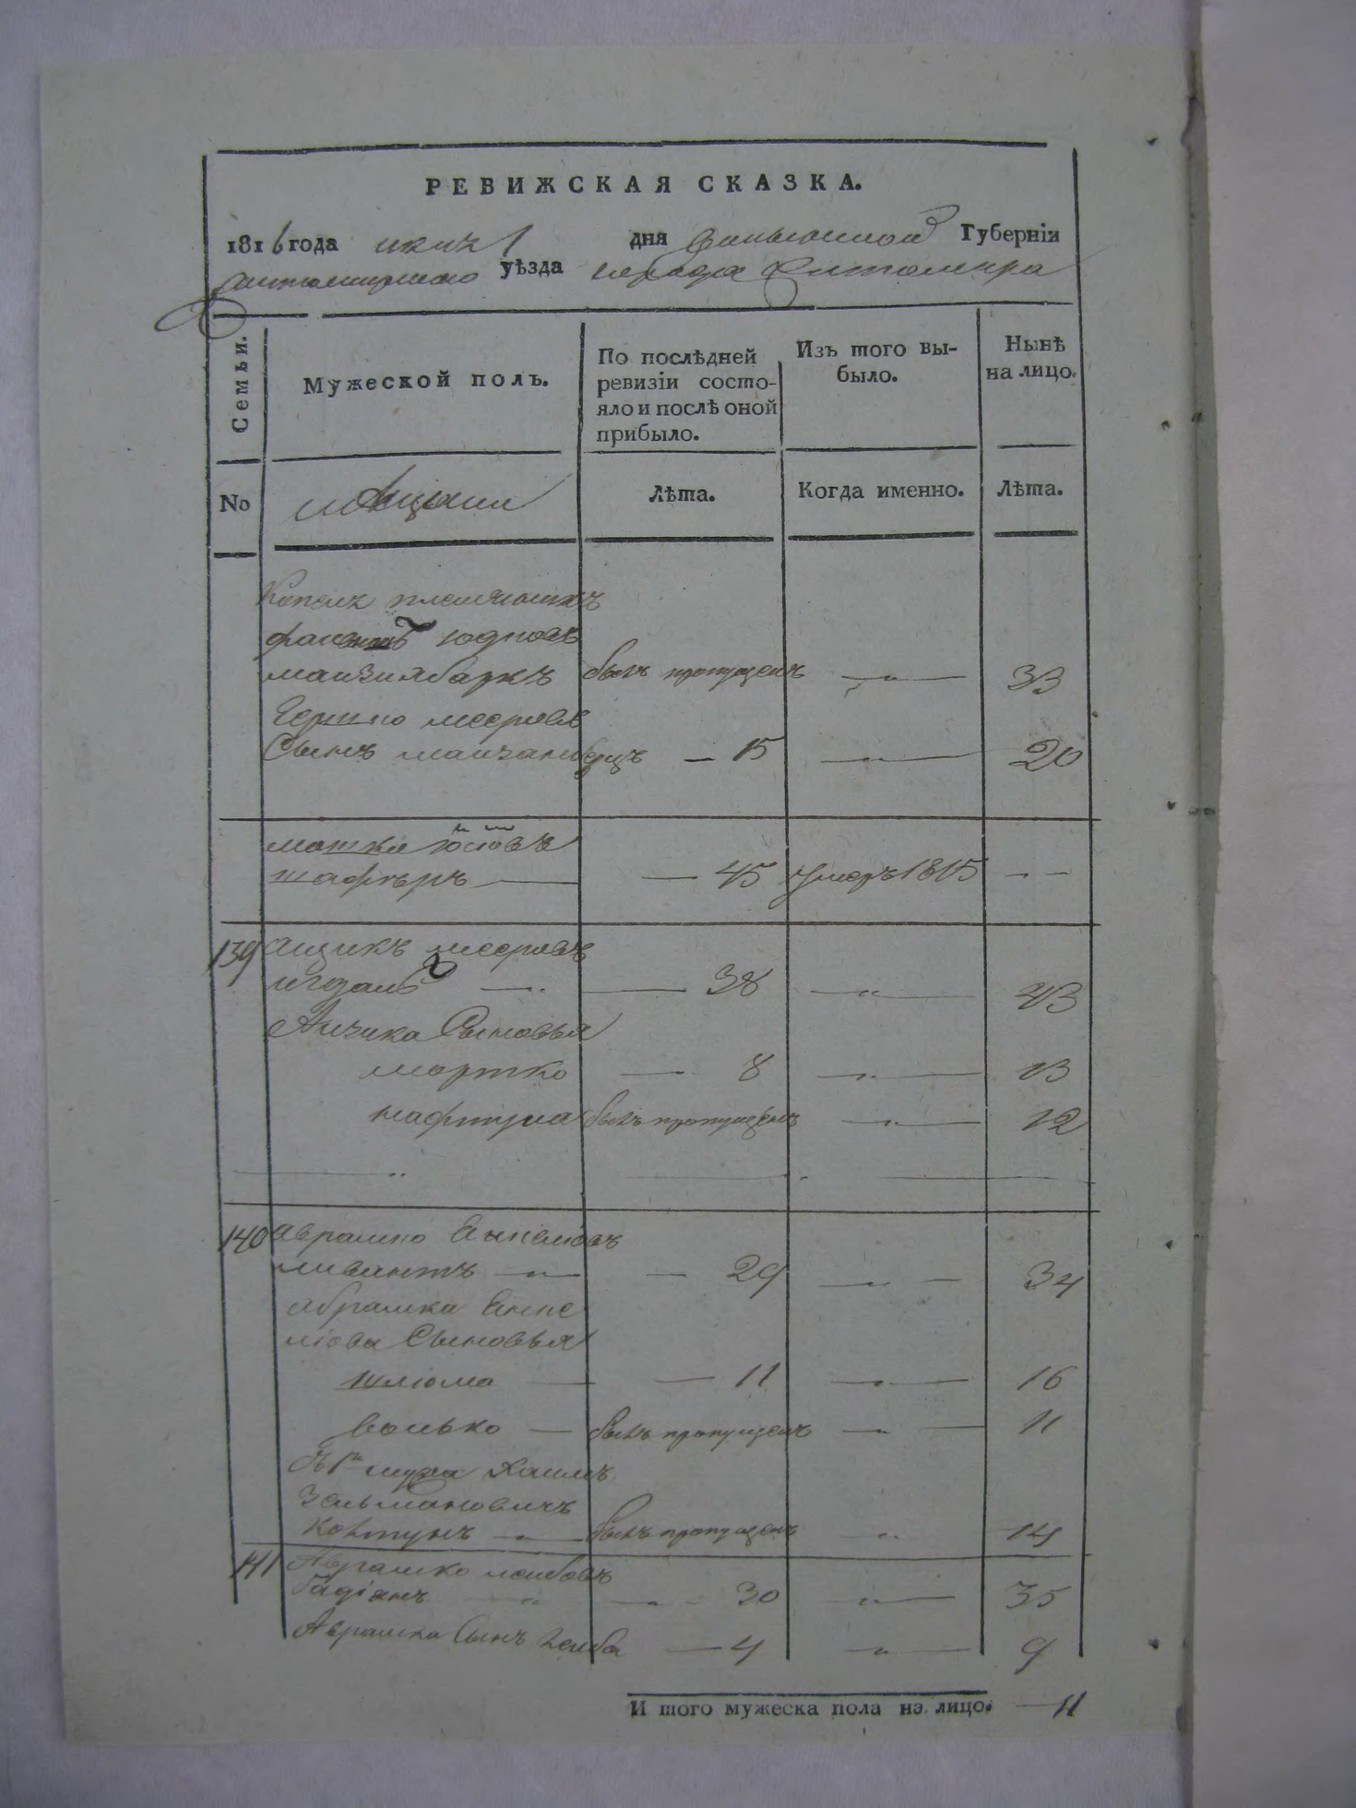 РЕВИЖСКАЯ СКАЗКА.
1816 года июня 1 дня Волынской Губерніи
Житомирского уѣзда города Житомира
Семьи.
Мужеской полъ.
По послѣдней
ревизіи состо-
яло и послѣ оной
прибыло.
Изъ того вы-
было.
Нынѣ
на лицо.
No
мѣщани
Лѣта.
Когда именно.
Лѣта.
племянникъ
былъ пропущенъ 33
Сынъ — 15 20
Мошко
шафѣръ — 45 умеръ 1815 - -
139 Аицикъ мееровъ
38 43
Аицика Сыновья
мортко — 8 13
нафтула былъ пропущенъ 12
140 Аврамко Янкеліовъ
ливантъ — 29 34
Абрамка Янке
ліова Сыновья
шліома — 11 16
волько — былъ пропущенъ 11
Хаимъ
Зельмановичъ
былъ пропущенъ 14
141 Аврамко лейбовъ
30 35
Аврамка Сынъ лейба — 4 9
И того мужеска пола на лицо. — 11